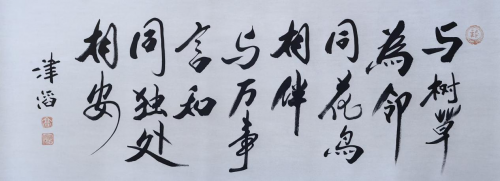 与树草
為邻
同花鸟
相伴
与万事
言和
同独处
相安
津滔